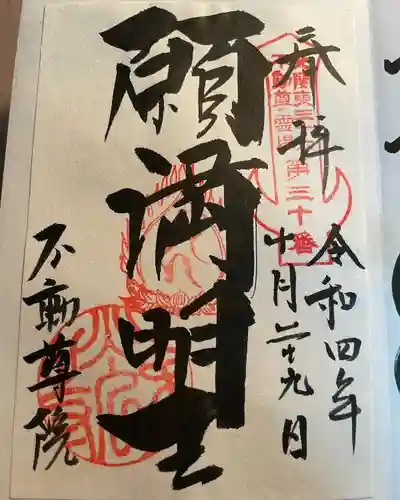 奉拝
令和四年
十月二十九日
北関東三十六
不動尊霊場第三十番
願満明王
不動尊院